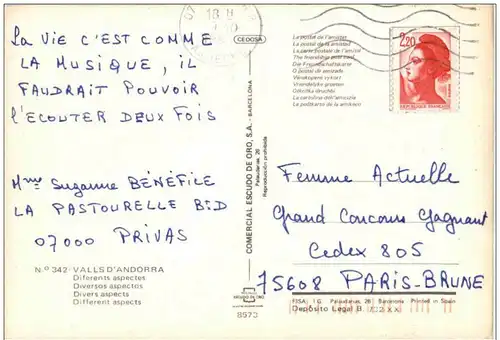 La Vie C'EST COMME
LA MUSIQUE, IL
FAUDRAIT POUVOIR
L'ECOUTER DEUX FOIS
Mme Suzanne BÉNÉFICE
LA PASTOURELLE
07000 PRIVAS
N.º 342 - VALLS D'ANDORRA
Diferents aspectes
Diversos aspectos
Divers aspects
Different aspects
18 H
CEDOSA
COMERCIAL ESCUDO DE ORO, S.A. - BARCELONA
Palaudarias, 26
Reproducción prohibida
ESCUDO DE ORO
8573
La postal de l'amistat
La postal de la amistad
La carte de l'amitié
The friendship post card
Die Freundschaftskarte
O postal da amizade
Vriendelijke groeten
La cartolina dell'amicizia
2,20
REPUBLIQUE FRANÇAISE
Femme Actuelle
Grand Concours Gagnant
Cedex 805
75608 PARIS-BRUNE
FISA I.G. Palaudarias, 26 Barcelona Printed in Spain
Depósito Legal B.